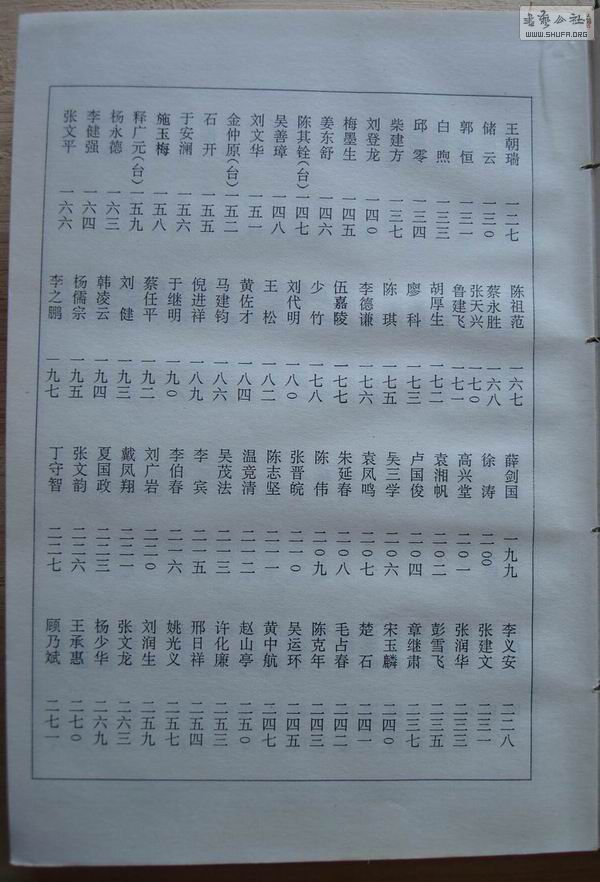 王朝瑞 一二七
储云 一三〇
郭恒 一三一
白煦 一三三
邱零 一三四
柴建方 一三七
刘登龙 一四〇
梅墨生 一四五
姜东舒 一四六
陈其铨(台) 一四七
吴善璋 一四八
刘文华 一五一
金仲原(台) 一五二
石开 一五五
于安澜 一五六
施玉梅 一五八
释广元(台) 一五九
杨永德 一六三
李健强 一六四
张文平 一六六
陈祖范 一六七
蔡永胜 一六八
张天兴 一七〇
鲁建飞 一七一
胡厚生 一七二
廖科 一七三
陈琪 一七五
李德谦 一七六
伍嘉陵 一七七
少竹 一七八
刘代明 一八〇
王松 一八二
黄佐才 一八四
马建钧 一八六
倪进祥 一八九
于继明 一九〇
蔡任平 一九二
刘健 一九三
韩凌云 一九四
杨儒宗 一九五
李之鹏 一九七
薛剑国 一九九
徐涛 二〇〇
高兴堂 二〇一
袁湘帆 二〇二
卢国俊 二〇四
吴三学 二〇六
袁凤鸣 二〇七
朱延春 二〇八
陈伟 二〇九
张晋皖 二一〇
陈志坚 二一一
温竞清 二一二
吴茂法 二一三
李宾 二一五
李伯春 二一六
刘广岩 二二〇
戴凤翔 二二一
夏国政 二二三
张文韵 二二六
丁守智 二二七
李义安 二二八
张建文 二三一
张润华 二三三
彭雪飞 二三五
章继肃 二三七
宋玉麟 二四〇
楚石 二四一
毛占春 二四二
陈克年 二四三
吴运环 二四五
黄中航 二四七
赵山亭 二五〇
许化廉 二五三
邢日祥 二五四
姚光义 二五七
刘润生 二五九
张文龙 二六三
杨少华 二六九
王承惠 二七〇
顾乃斌 二七一
书艺公社
WWW.SHUFA.ORG